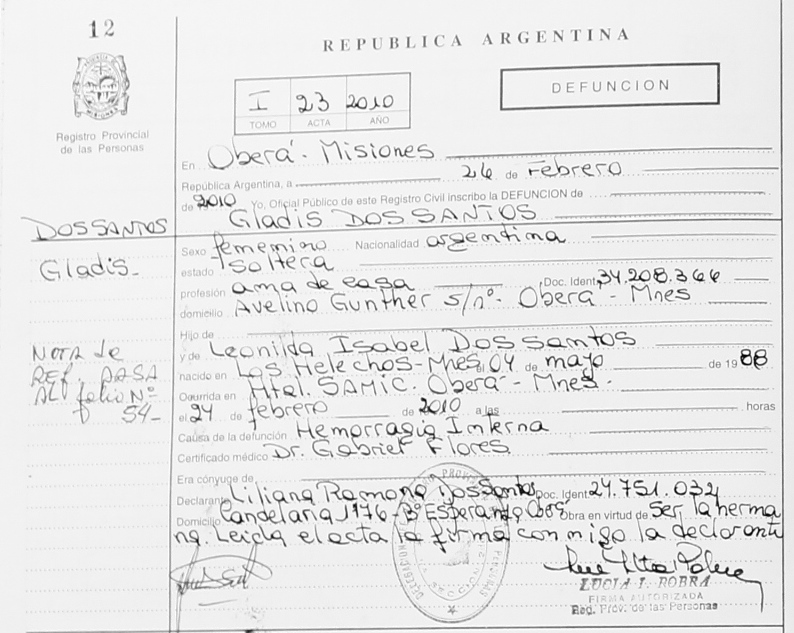 12
REPUBLICA ARGENTINA
DEFUNCION
I 23 2010
TOMO ACTA AÑO
Registro Provincial
de las Personas
En Oberá - Misiones
República Argentina, a 26 de Febrero
de 2010 Yo, Oficial Público de este Registro Civil inscribo la DEFUNCION de
Gladis DOS SANTOS
DOS SANTOS
Gladis-
Sexo femenino Nacionalidad argentina
estado soltera
profesión ama de casa Doc. Ident. 34.208.366
domicilio Avelino Gunther s/nº- Oberá - Mnes
Hijo de
y de Leonilda Isabel Dos santos
nacido en Los Helechos-Mnes el 04 de mayo de 1988
Ocurrida en Htal. SAMIC. Oberá - Mnes.
el 24 de febrero de 2010 a las horas
Causa de la defunción Hemorragia Interna
Certificado médico Dr. Gabriel Flores.
NOTA de
REF. PASA
AL folio Nº
54-
Era cónyuge de
Declarante Liliana Ramona Dos Santos Doc. Ident. 24.751.032
Domicilio Candelaria 1176-Bº Esperanza, Oberá Obra en virtud de Ser la herma
na. Leida el acta la firma conmigo la declarante
LUCIA I. ROBRA
FIRMA AUTORIZADA
Reg. Prov. de las Personas